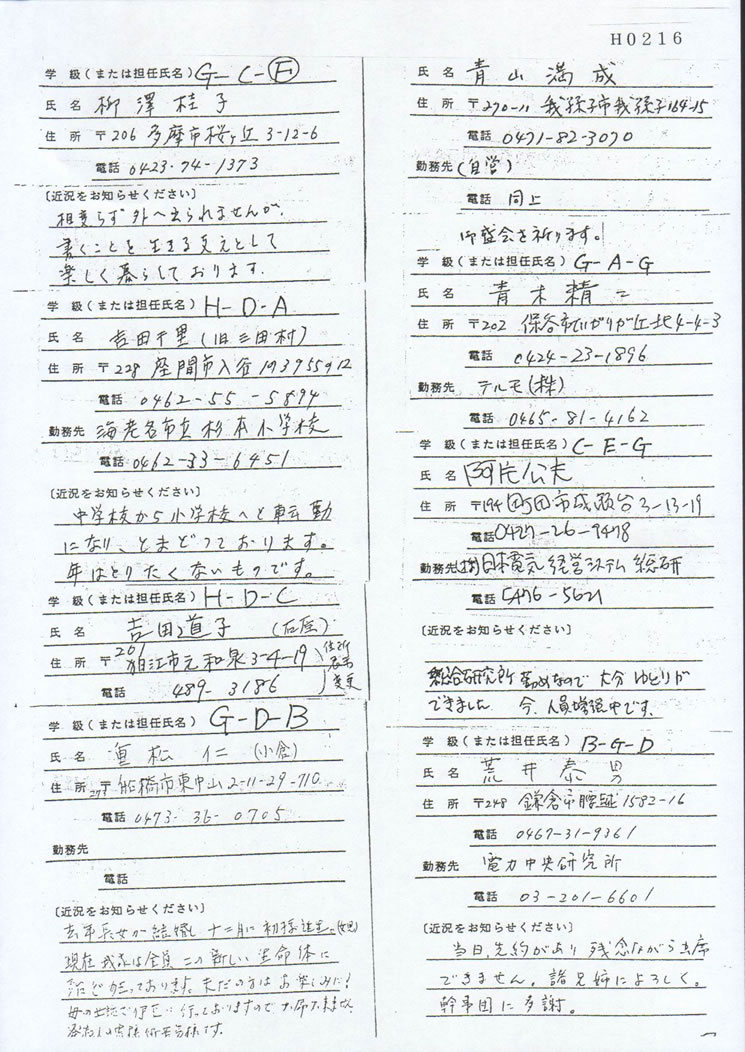 H0216
学 級(または担任氏名) G-C-F
氏 名 柳澤桂子
住 所 〒206 多摩市桜ヶ丘 3-12-6
電話 0423-74-1373
〔近況をお知らせください〕
相変らず外へ出られませんが、
書くことを生きる支えとして
楽しく暮らしております.
学 級(または担任氏名) H-D-A
氏 名 吉田千里(旧三田村)
住 所 〒228 座間市入谷
電話 0462-55-5894
勤務先 海老名市立杉本小学校
電話 0462-33-6451
〔近況をお知らせください〕
中学校から小学校へと転勤
になり、とまどっております。
年はとりたくないものです。
学 級(または担任氏名) H-D-C
氏 名 吉田道子 (石原)
住 所 〒201 狛江市元和泉3-4-19
電話 489-3186
住所 番号 変更
学 級(または担任氏名) G-D-B
氏 名 重松 仁 (小倉)
住 所 〒273 船橋市東中山2-11-29-710
電話 0473-36-0705
勤務先
電話
〔近況をお知らせください〕
去年長女が結婚し 十二月に初孫誕生
現在我家は全員この新しい生命体に
ております。 お楽しみに!
氏 名 青山満成
住 所 〒270-11 我孫子市我孫子164-15
電話 0471-82-3070
勤務先 (自営)
電話 同上
御盛会を祈ります。
学 級(または担任氏名) G-A-G
氏 名 青木精二
住 所 〒202 保谷市ひばりが丘北4-4-3
電話 0424-23-1896
勤務先 テルモ(株)
電話 0465-81-4162
学 級(または担任氏名) C-E-G
氏 名 阿片公夫
住 所 〒194 町田市成瀬台3-13-19
電話 0427-26-9478
勤務先 (株)日本電気経営システム総研
電話 5476-5621
〔近況をお知らせください〕
総合研究所勤めなので 大分ゆとりが
できました 今、人員増強中です.
学 級(または担任氏名) B-G-D
氏 名 荒井泰男
住 所 〒248 鎌倉市腰越1582-16
電話 0467-31-9361
勤務先 電力中央研究所
電話 03-201-6601
〔近況をお知らせください〕
当日,先約があり残念ながら出席
できません。諸兄姉によろしく。
幹事団に多謝。